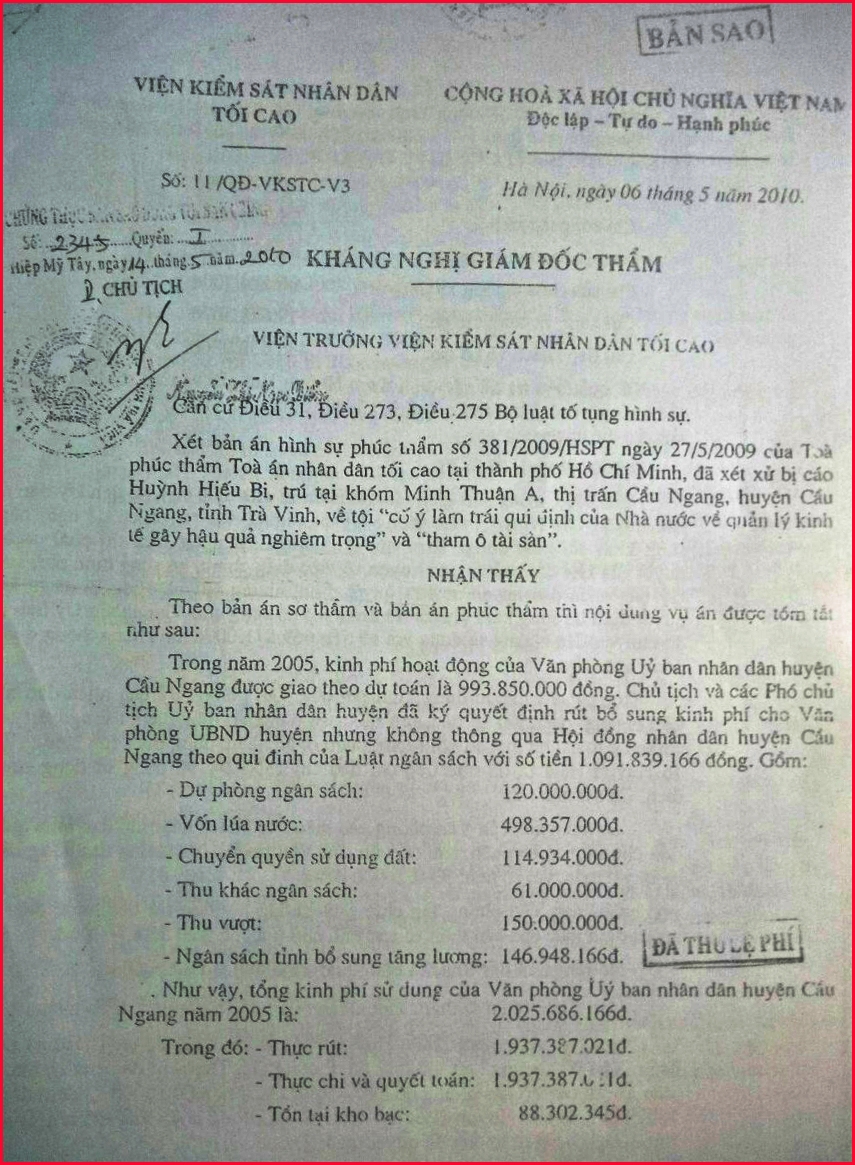 BẢN SAO
VIỆN KIỂM SÁT NHÂN DÂN
TỐI CAO
CỘNG HOÀ XÃ HỘI CHỦ NGHĨA VIỆT NAM
Độc lập – Tự do – Hạnh phúc
Số: 11/QĐ-VKSTC-V3
Hà Nội, ngày 06 tháng 5 năm 2010.
CHỨNG THỰC BẢN SAO ĐÚNG VỚI BẢN CHÍNH
Số: 2345 Quyển: I
Hiệp Mỹ Tây, ngày 14 tháng 5 năm 2010
CHỦ TỊCH
KHÁNG NGHỊ GIÁM ĐỐC THẨM
VIỆN TRƯỞNG VIỆN KIỂM SÁT NHÂN DÂN TỐI CAO
Căn cứ Điều 31, Điều 273, Điều 275 Bộ luật tố tụng hình sự.
Xét bản án hình sự phúc thẩm số 381/2009/HSPT ngày 27/5/2009 của Toà
phúc thẩm Toà án nhân dân tối cao tại thành phố Hồ Chí Minh, đã xét xử bị cáo
Huỳnh Hiếu Bi, trú tại khóm Minh Thuận A, thị trấn Cầu Ngang, huyện Cầu
Ngang, tỉnh Trà Vinh, về tội “cố ý làm trái qui định của Nhà nước về quản lý kinh
tế gây hậu quả nghiêm trọng” và “tham ô tài sản”.
NHẬN THẤY
Theo bản án sơ thẩm và bản án phúc thẩm thì nội dung vụ án được tóm tắt
như sau:
Trong năm 2005, kinh phí hoạt động của Văn phòng Uỷ ban nhân dân huyện
Cầu Ngang được giao theo dự toán là 993.850.000 đồng. Chủ tịch và các Phó chủ
tịch Uỷ ban nhân dân huyện đã ký quyết định rút bổ sung kinh phí cho Văn
phòng UBND huyện nhưng không thông qua Hội đồng nhân dân huyện Cầu
Ngang theo qui đinh của Luật ngân sách với số tiền 1.091.839.166 đồng. Gồm:
- Dự phòng ngân sách: 120.000.000đ.
- Vốn lúa nước: 498.357.000đ.
- Chuyển quyền sử dụng đất: 114.934.000đ.
- Thu khác ngân sách: 61.000.000đ.
- Thu vượt: 150.000.000đ.
- Ngân sách tỉnh bổ sung tăng lương: 146.948.166đ.
ĐÃ THU LỆ PHÍ
Như vậy, tổng kinh phí sử dụng của Văn phòng Uỷ ban nhân dân huyện Cầu
Ngang năm 2005 là: 2.025.686.166đ.
Trong đó: - Thực rút: 1.937.387.021đ.
- Thực chi và quyết toán:
- Tồn tại kho bạc: 88.302.345đ.